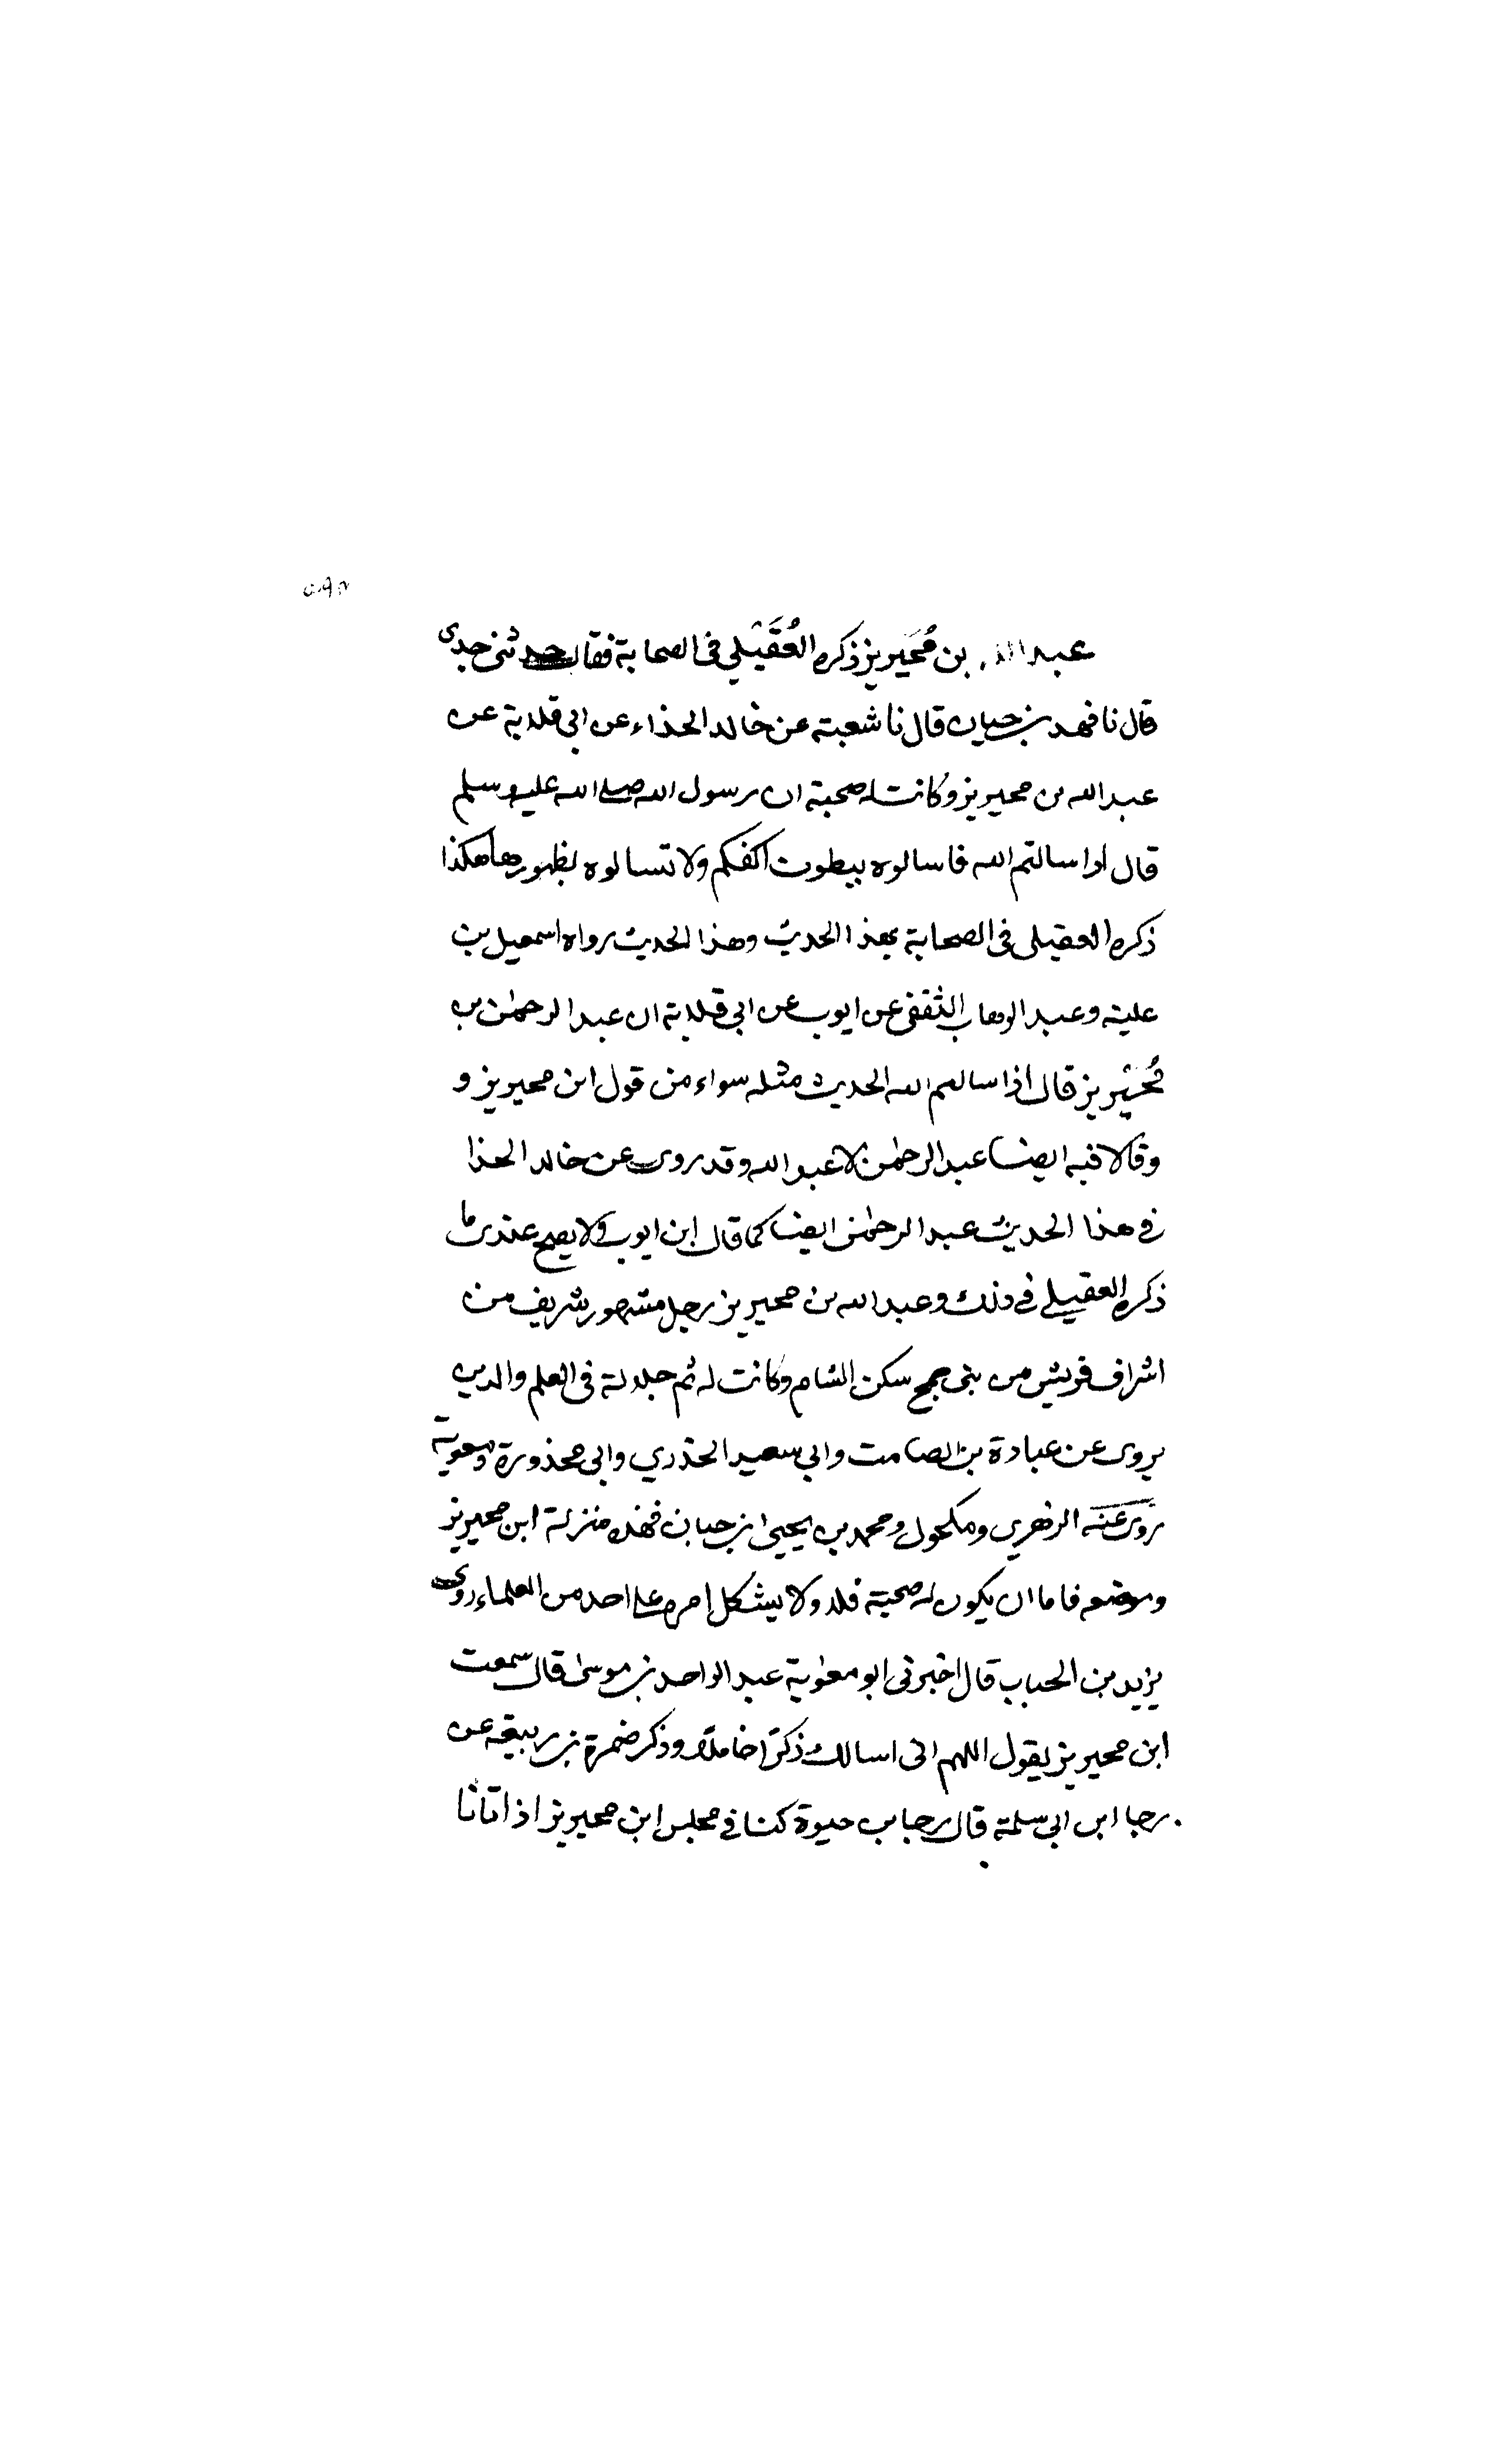 عبد الله بن مُحَيريز ذكره العُقَيْلي في الصحابة فقال حدثني جدى
قال نا فهد بن حيان قال نا شعبة عن خالد الحذاء عن ابي قلابة عن
عبد الله بن محيريز وكانت له صحبة ان رسول الله صلى الله عليه وسلم
قال اذا سالتم الله فاسالوه ببطون اكفكم ولا تسالوه بظهورها هكذا
ذكره العقيلى فى الصحابة بهذا الحديث وهذا الحديث رواه اسمعيل بن
علية وعبد الوهاب الثقفى عن ايوب عن ابي قلابة ان عبد الرحمٰن بن
مُحَيْريز قال اذا سالتم الله الحديث مثله سواء من قول ابن محيريز و
وقالا فيه ايضا عبد الرحمٰن لا عبد الله وقد روى عن خالد الحذا
في هذا الحديث عبد الرحمٰن ايضا كما قال ابن ايوب ولا يصح عندى ما
ذكره العقيلي في ذلك وعبد الله بن محيريز رجل مشهور شريف من
اشراف قريش من بنى جمح سكن الشام وكانت له ثم جلالة فى العلم والدين
يروى عن عبادة بن الصامت وابي سعيد الخذري وابى محذورة ومعوية
روى عنه الزهري ومكحول ومحمد بن يحيىٰ بن حبان فهذه منزلة ابن محيريز
وموضعه فاما ان يكون له صحبة فلا ولا يشكل امره على احد من العلماء روى
يزيد بن الحباب قال اخبرنى ابو معٰوية عبد الواحد بن موسىٰ قال سمعت
ابن محيريز يقول اللهم انى اسالك ذكرًا خاملًا وذكر ضمرة بن ربيعة عن
رجا ابن ابي سلمة قال رجا بن حيوة كنا في مجلس ابن محيريز اذ اتانا